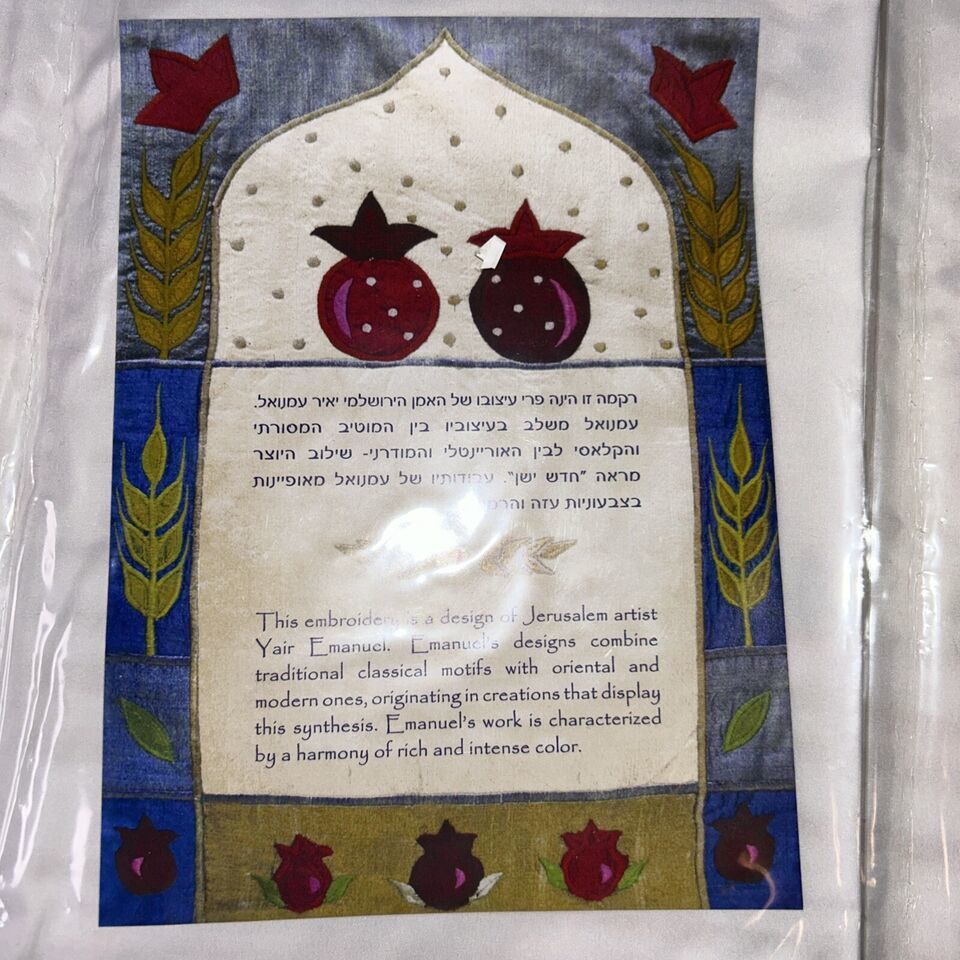 רקמה זו הינה פרי עיצובו של האמן הירושלמי יאיר עמנואל.
עמנואל משלב בעיצוביו בין המוטיב המסורתי
והקלאסי לבין האוריינטלי והמודרני- שילוב היוצר
מראה "חדש ישן". עבודותיו של עמנואל מאופיינות
בצבעוניות עזה
This embroidery is a design of Jerusalem artist
Yair Emanuel. Emanuel's designs combine
traditional classical motifs with oriental and
modern ones, originating in creations that display
this synthesis. Emanuel's work is characterized
by a harmony of rich and intense color.